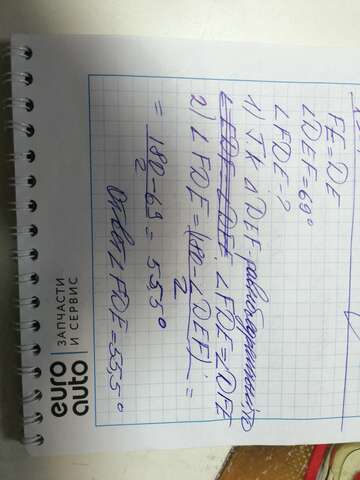 FE = DE
∠DEF = 69°
∠FDE - ?
1) Т.к. △DEF - равнобедренный, то
∠FDE = ∠DFE ∠FDE = ∠DFE
2) ∠FDE = (180 - ∠DEF) / 2 =
= 180 - 69 / 2 = 55,5°
Ответ: ∠FDE = 55,5°
ЗАПЧАСТИ
И СЕРВИС
euro
auto